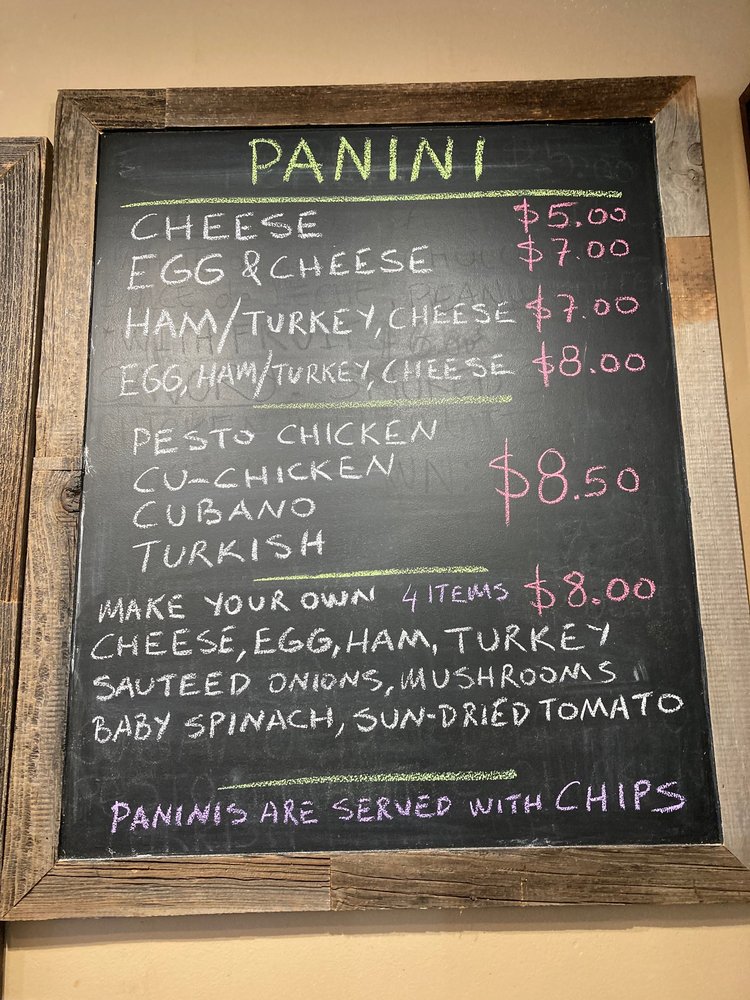 PANINI
CHEESE $5.00
EGG & CHEESE $7.00
HAM/TURKEY, CHEESE $7.00
EGG, HAM/TURKEY, CHEESE $8.00
PESTO CHICKEN
CU-CHICKEN
CUBANO
TURKISH
$8.50
MAKE YOUR OWN 4 ITEMS $8.00
CHEESE, EGG, HAM, TURKEY
SAUTEED ONIONS, MUSHROOMS
BABY SPINACH, SUN-DRIED TOMATO
PANINIS ARE SERVED WITH CHIPS